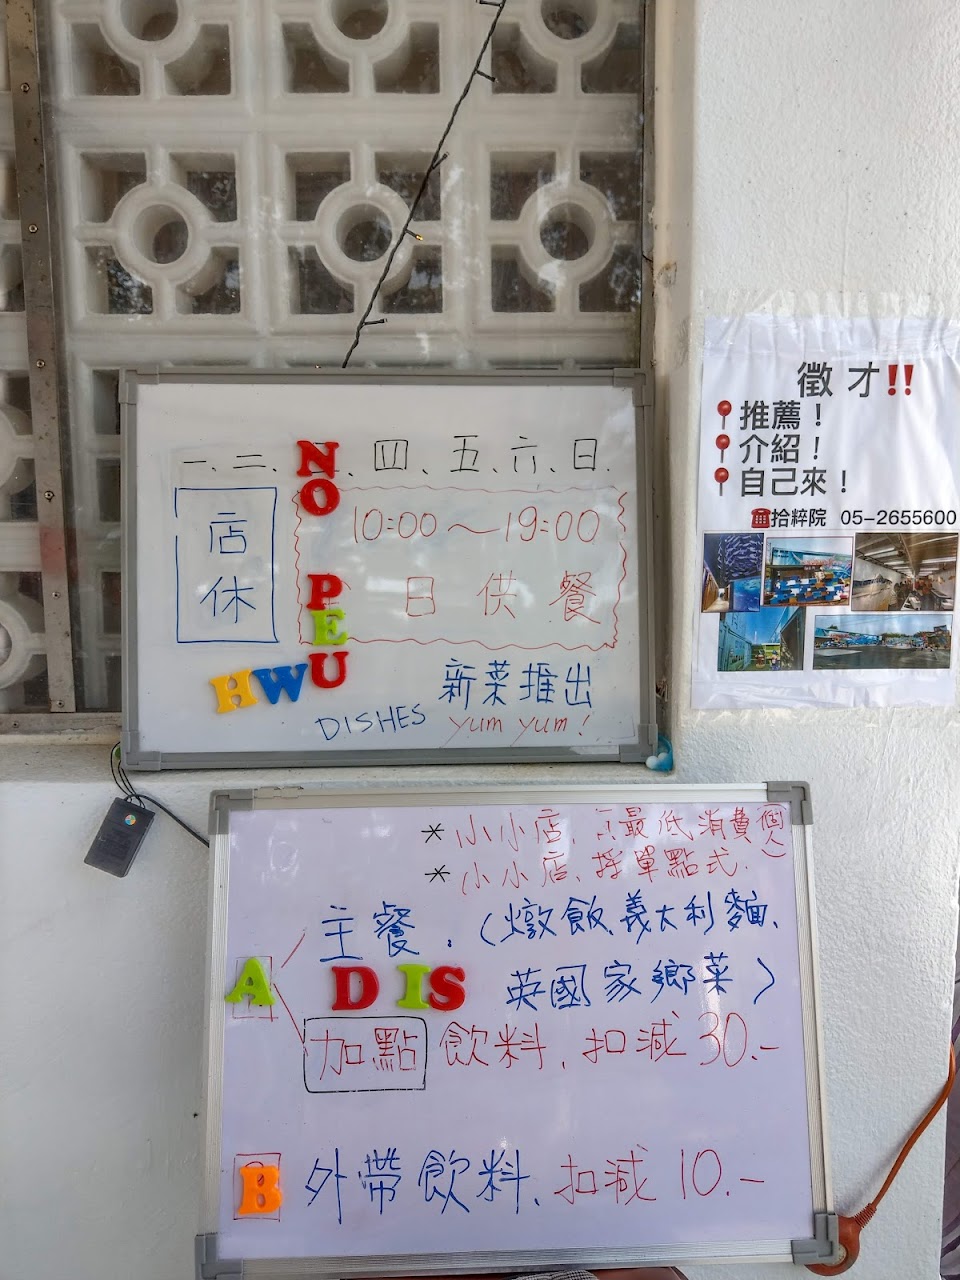 一、二、 、四、五、六、日.
店休
10:00～19:00
日供餐
NO
PEU
HWU
新菜推出
DISHES yum yum!
徵才!!
推薦!
介紹!
自己來!
☎拾粹院 05-2655600
* 小小店、 最低消費(個人)
* 小小店、採單點式.
主餐.(燉飯、義大利麵、
英國家鄉菜)
A DIS
加點 飲料, 扣減30.-
B 外帶飲料、扣減10.-